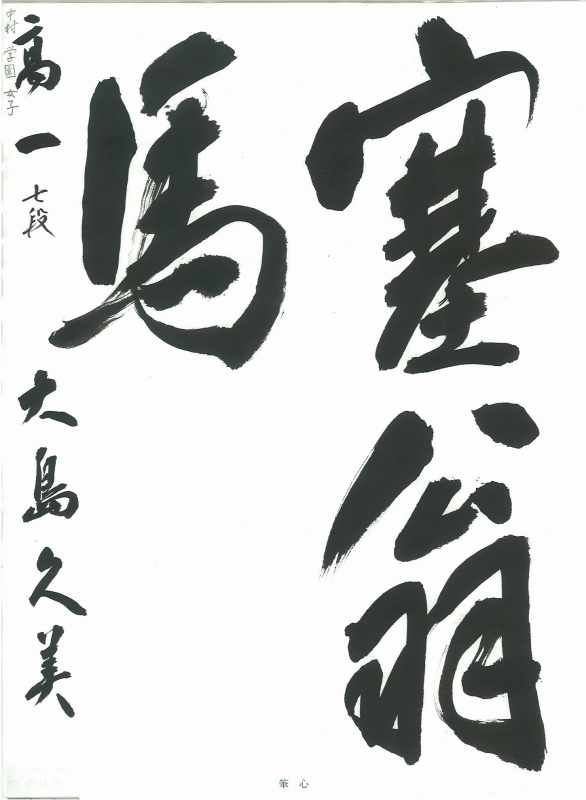 塞翁
馬
高一 七段 大島久美
中村学園女子
心筆